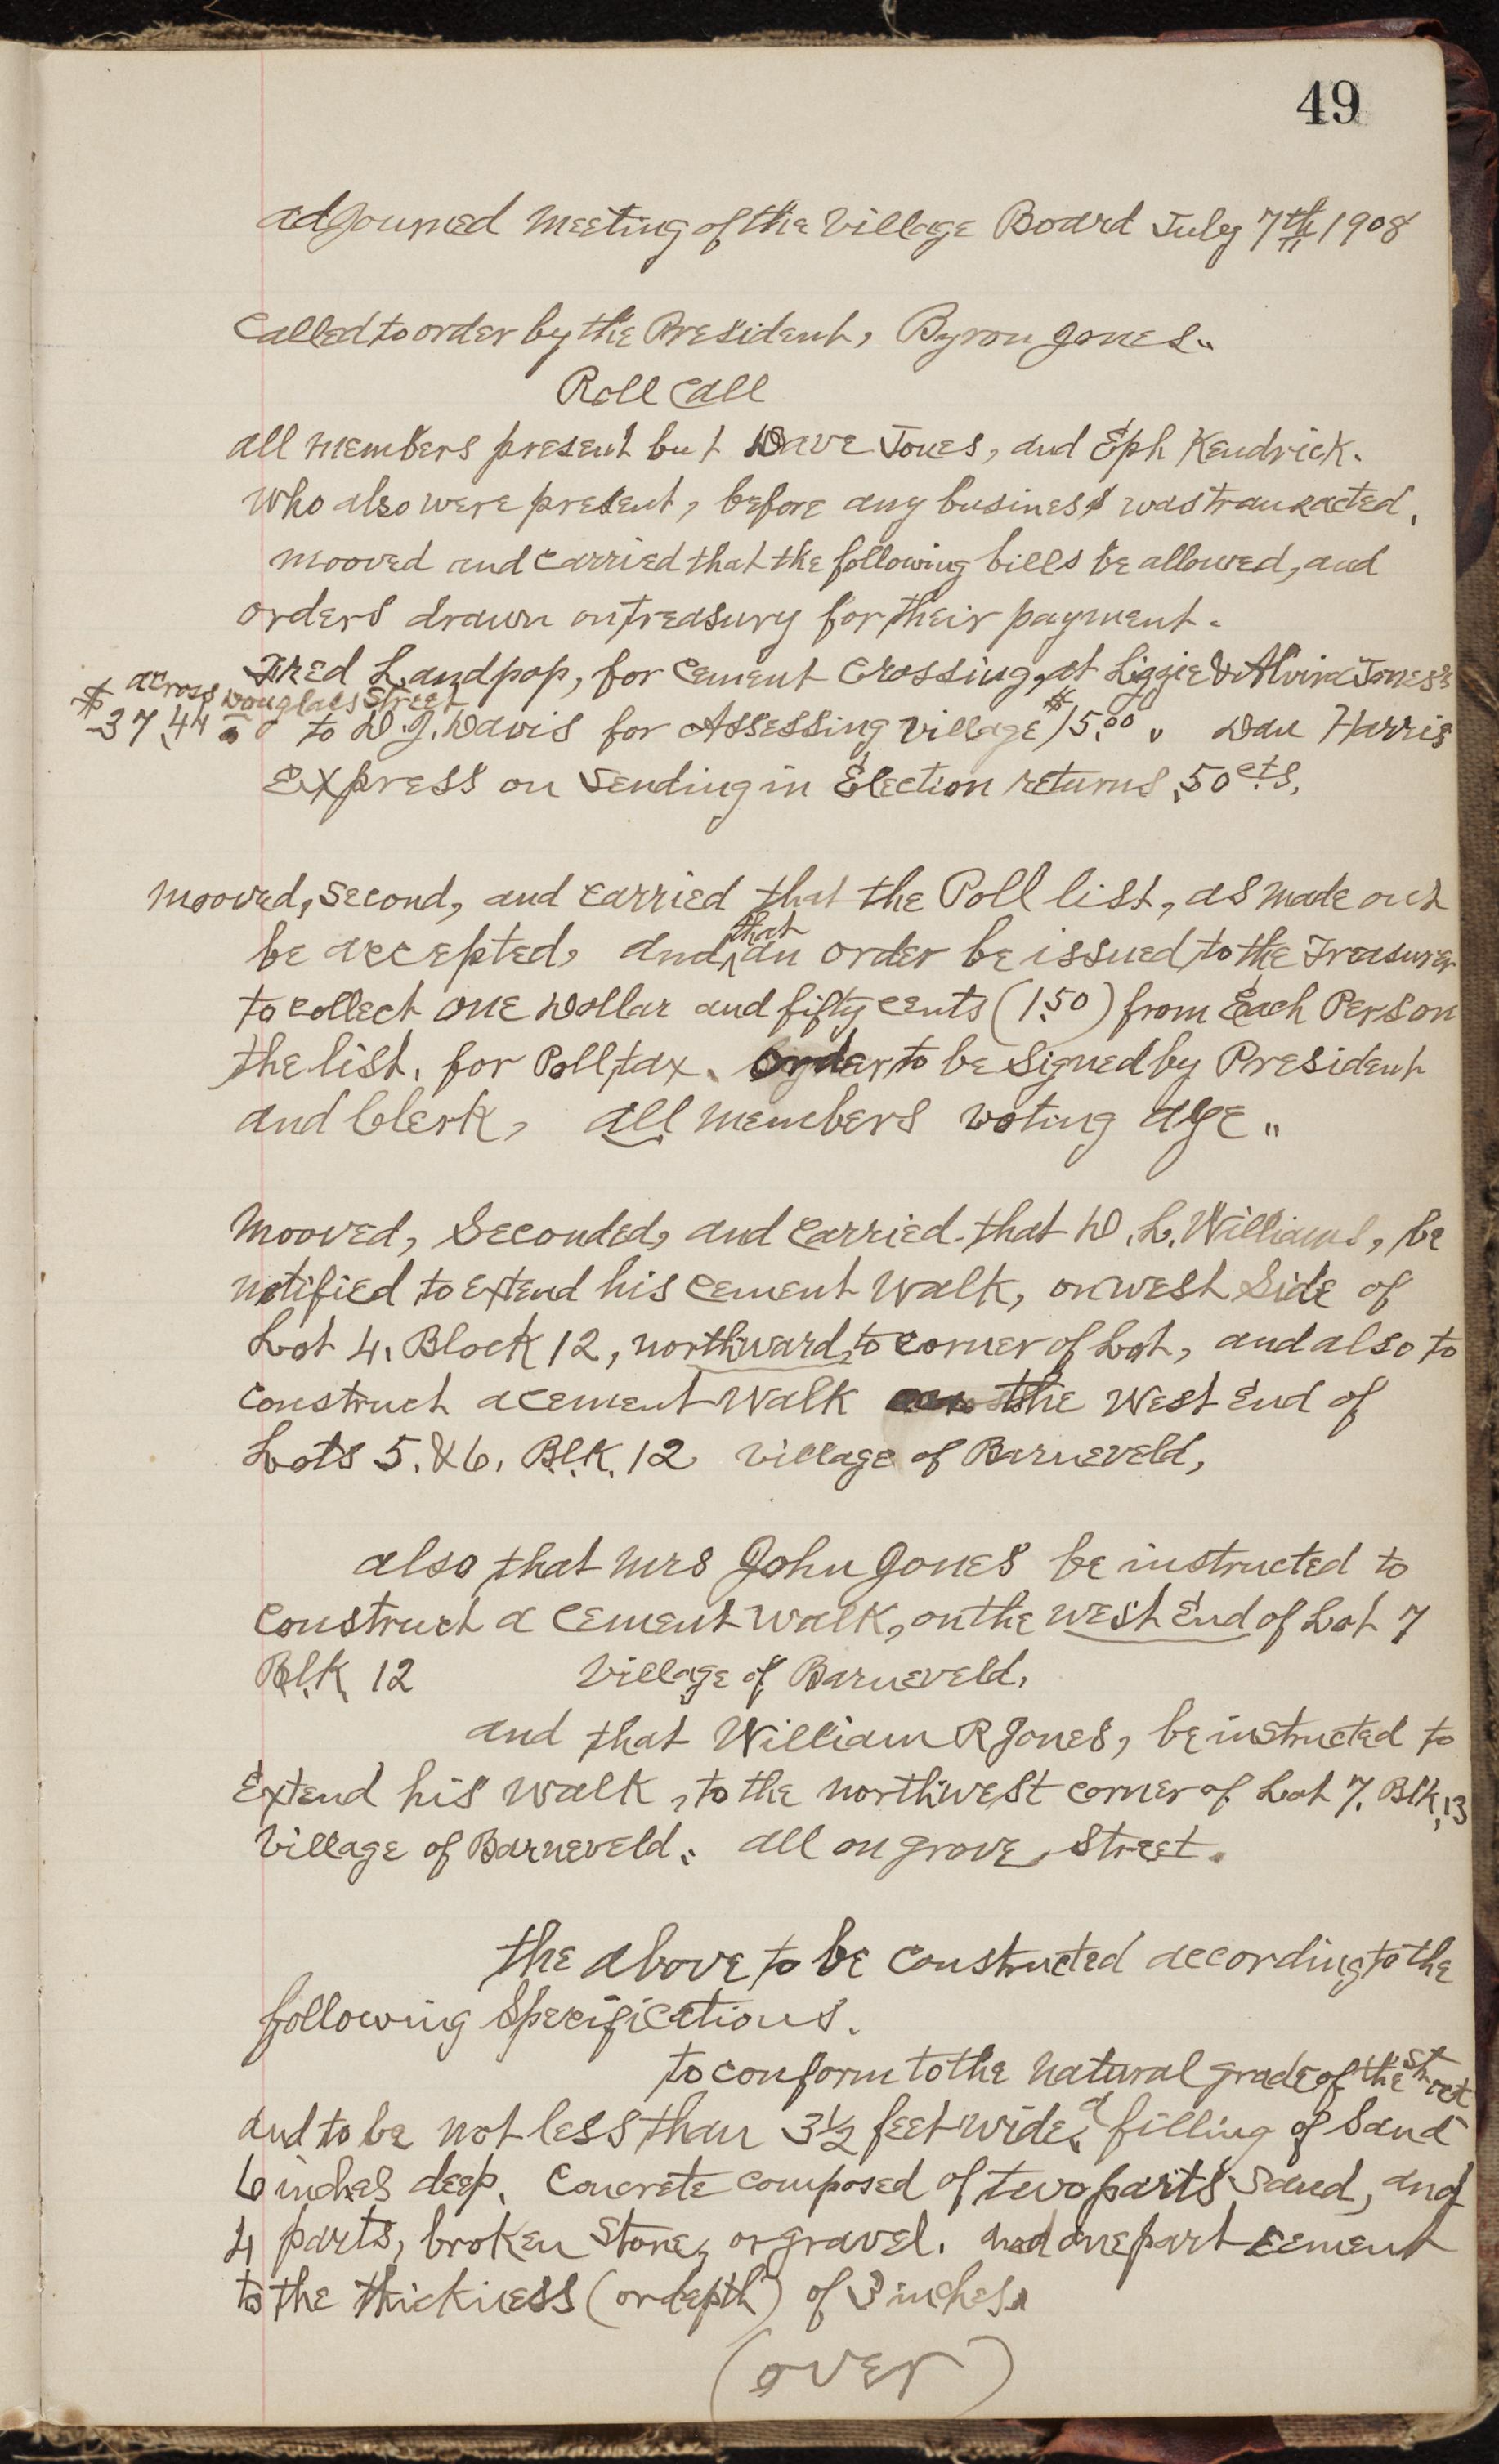 49
adjourned meeting of the Village Board July 7th 1908
Called to order by the President, Byron Jones.
Roll Call
all members present but Dave Jones, and Eph Kendrick.
who also were present, before any business was transacted.
mooved and carried that the following bills be allowed, and
orders drawn on treasury for their payment.
Fred Landpop, for Cement Crossing, at Lizzie & Alvira Jones's
across Douglass Street
$37.44 to D. J. Davis for Assessing Village $15.00 " Dan Harris
Express on Sending in Election returns .50 cts.
mooved, Second, and carried that the Poll list, as made out
be accepted, and that an order be issued to the Treasurer
to collect one Dollar and fifty cents (1.50) from Each Person
the list, for Poll tax. Order to be signed by President
and Clerk, all members voting aye "
Mooved, Seconded, and carried that D. L. Williams, be
notified to extend his cement walk, on west Side of
Lot 4. Block 12, northward, to corner of Lot, and also to
construct a cement walk the West End of
Lots 5. & 6. Blk. 12 Village of Barneveld,
also that Mrs John Jones be instructed to
construct a cement walk, on the west End of Lot 7
Blk. 12 Village of Barneveld.
and that William R Jones, be instructed to
Extend his walk, to the northwest corner of Lot 7. Blk. 13
Village of Barneveld. all on grove, street.
the above to be constructed according to the
following Specifications.
to conform to the natural grade of the street
and to be not less than 3½ feet wide, a filling of Sand
6 inches deep. Concrete composed of two parts Sand, and
4 parts, broken Stone, or gravel. and one part cement
to the thickness (or depth) of 3 inches.
(over)